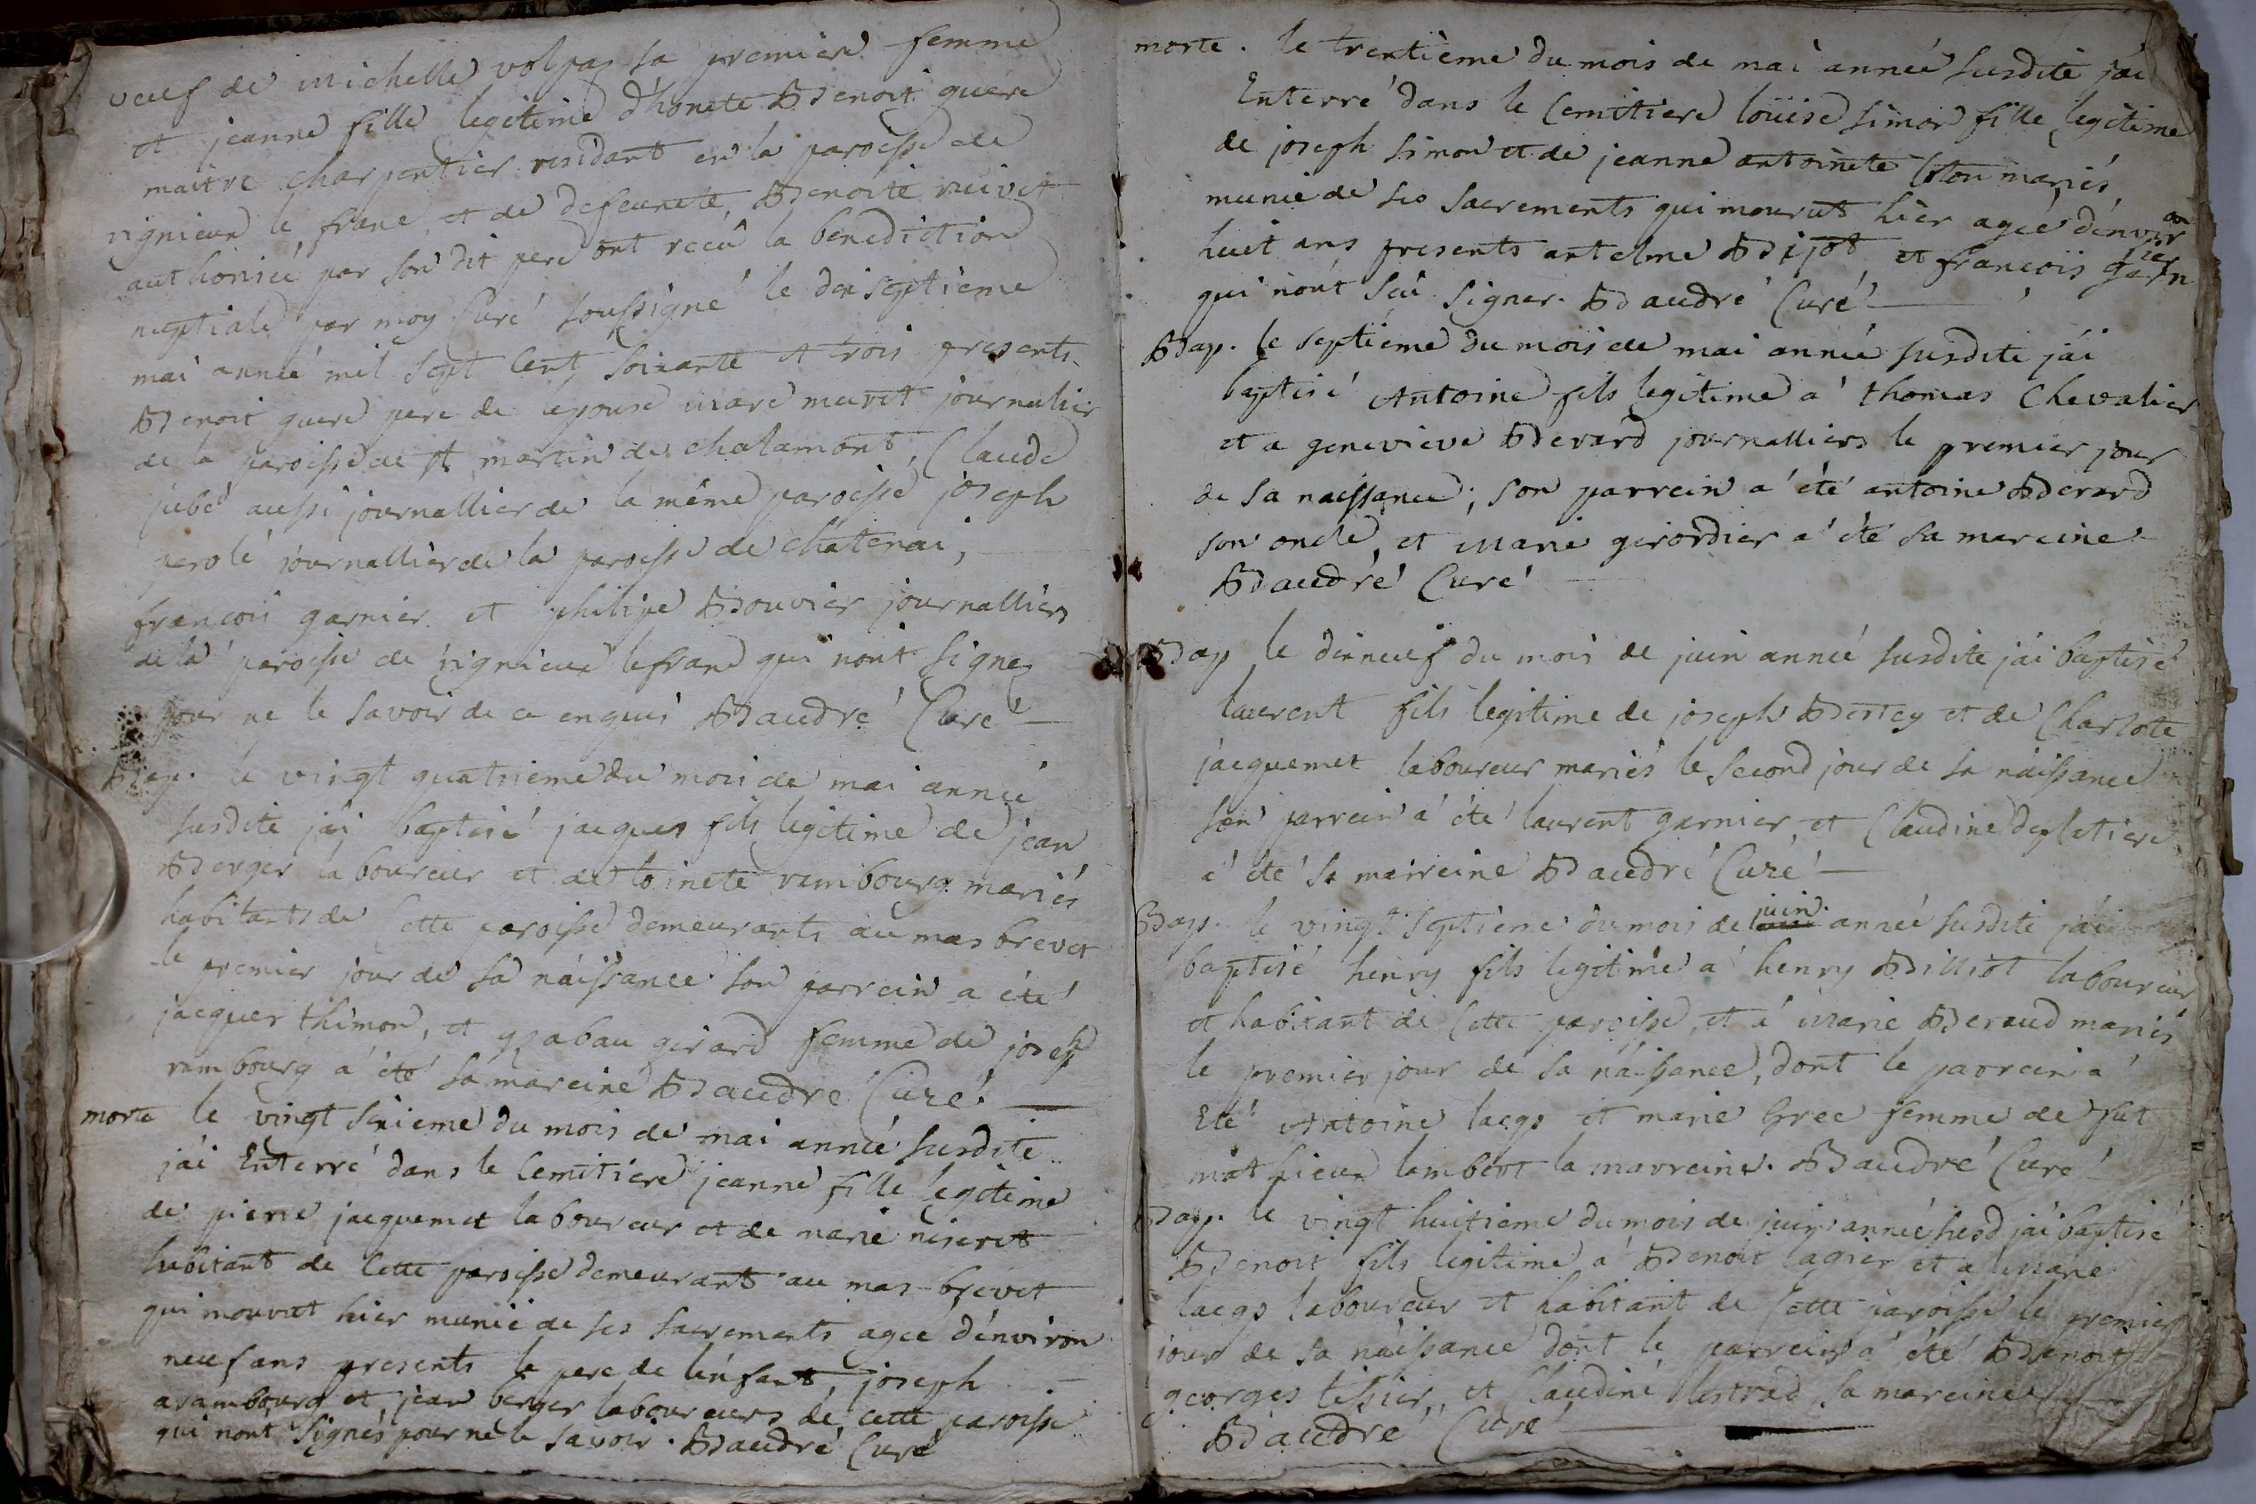 veuf de michelle volpaz sa premiere femme
et jeanne fille legitime d'honete Benoit guere
maitre charpentier residant en la paroisse de
rignieux le franc et de defeunte Benoite
authorisée par son dit pere ont recû la benediction
nuptiale par moy Curé soussigné le dixseptieme
mai année mil sept Cent soixante et trois presents
Benoit guere pere de l'epouse marc journalier
de la paroisse de st martin de chalamont, Claude
jubé aussi journallier de la même paroisse joseph
perolé journallier de la paroisse de châtenai,
francois garnier et philipe Bouvier journalliers
de la paroisse de rignieux lefranc qui nont signez
pour ne le savoir de ce enquis Baudré Curé
Bap. le vingt quatrieme du mois de mai année
susdite j'ai baptisé jacques fils legitime de jean
Berger laboureur et de toinete rambourg mariés
habitants de Cette paroisse demeurants au mas brevet
le premier jour de sa náissance son parrein a été
jacques thimon, et ysabau girard femme de joseph
rambourg a été sa mareine Baudre Curé.
morte le vingt sixieme du mois de mai année susdite
j'ai Enterré dans le Cemitiere jeanne fille legitime
de pierre jacquemet laboureur et de marie niseret
habitant de Cette paroisse demeurant au mas brevet
qui mourut hier munie de ses sacrements agee d'environ
neuf ans presents le pere de l'enfant joseph
arambourg et jean berger laboureurs de cette paroisse
qui nont signés pour ne le savoir. Baudré Curé
morte. le trentieme du mois de mai année susdite j'ai
Enterré dans le Cemitiere loüise simon fille legitime
de joseph simon et de jeanne antoinete mariés
munie de ses sacrements qui mourut hier agée d'environ
huit ans presents antelme Bijot et francois
qui n'ont sçu signer. Baudré Curé
Bap. le septieme du mois de mai année susdite j'ai
baptisé Antoine fils legitime a thomas Chevalier
et a genevieve Berard journalliers le premier jour
de sa naissance; son parrein a été antoine Berard
son oncle, et marie girordier a été sa mareine
Baudré Curé
Bap le dixneuf du mois de juin année susdite j'ai baptisé
laurent fils legitime de joseph Berrey et de Charlote
jacquemet laboureur mariés le second jour de sa náissance
son parrein a été laurent garnier, et Claudine
a été sa mairreine Baudré Curé
Bap. le vingt septieme du mois de juin année susdite j'ai
baptisé henry fils legitime a henry Billiot laboureur
et habitant de Cette paroisse et a marie Beraud mariés
le premier jour de sa náissance, dont le parrein a
Eté Antoine lacqs et marie Gree femme de fut
matfieux lambert la marreine. Baudré Curé
Bap. le vingt huitieme du mois de juin année susd j'ai baptisé
Benoit fils legitime a Benoit lagier et a marie
lacqs laboureur et habitant de Cette paroisse le premier
jour de sa náissance dont le parrein a été Benoit
georges tissier, et Claudine sa mareine
Baudré Curé